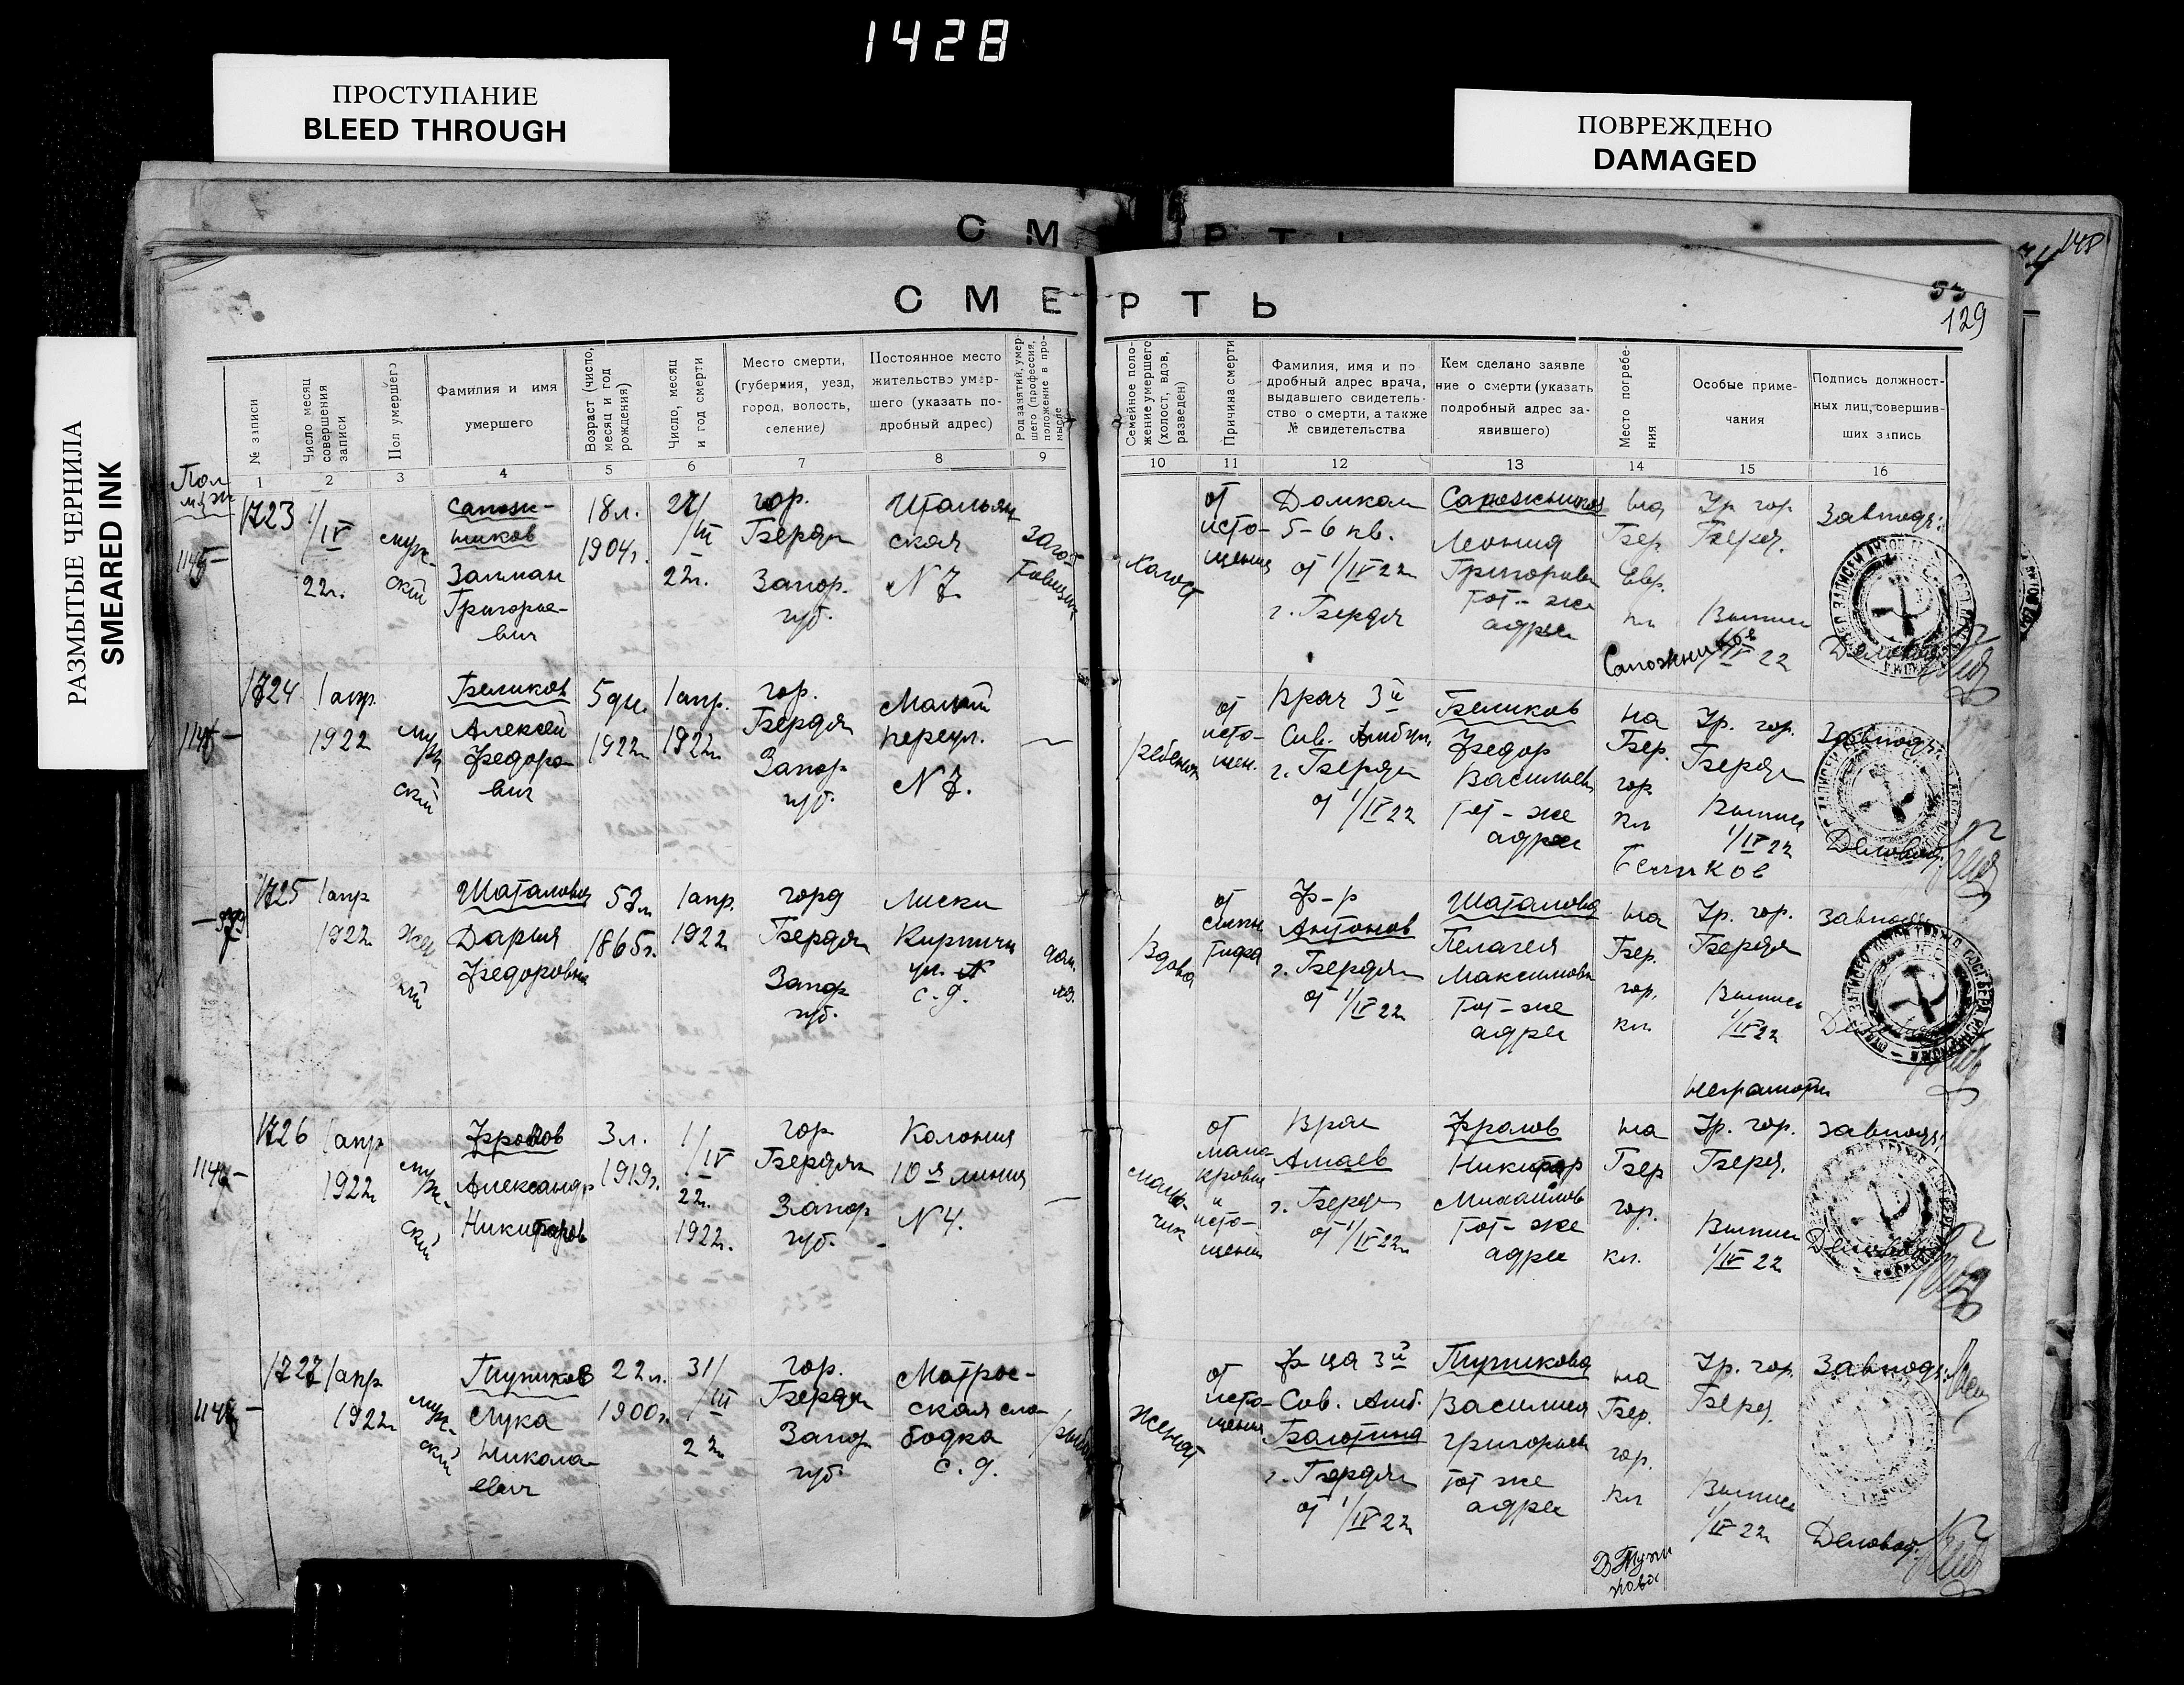 1428
ПРОСТУПАНИЕ
BLEED THROUGH
ПОВРЕЖДЕНО
DAMAGED
РАЗМЫТЫЕ ЧЕРНИЛА
SMEARED INK
148
СМЕРТЬ
129
№ записи
Число месяц совершения записи
Пол умершего
Фамилия и имя умершего
Возраст (число, месяц и год рождения)
Число, месяц и год смерти
Место смерти, (губерния, уезд, город, волость, селение)
Постоянное место жительство умершего (указать подробный адрес)
Род занятий, умершего (профессия, положение в промысле
Семейное положение умершего (холост, вдов, разведен)
Причина смерти
Фамилия, имя и подробный адрес врача, выдавшего свидетельство о смерти, а также № свидетельства
Кем сделано заявление о смерти (указать подробный адрес заявившего)
Место погребения
Особые примечания
Подпись должностных лиц, совершивших запись
1 2 3 4 5 6 7 8 9 10 11 12 13 14 15 16
1723
1/IV 22г.
мужской
Сапожников Залман Григорьевич
18л. 1904г.
/III 22г.
гор. Бердян Запор. губ.
Итальянская N 7.
Холост
от истощения
5-6 кв. от 1/IV 22г г. Бердян
Сапожников Леонид Григорьев тот-же адрес
на Бер Евр. кл
Гр гор Бердя. Выпись 1/IV 22
Завподъ.
Деловод
1724
1 апр. 1922
мужской
Беликов Алексей Федорович
5 дн. 1922г
1 апр. 1922г.
гор. Бердян Запор губ.
Малый переул. N 7.
—
ребенок
от истощ.
Врач 3й Сов. Амбул. г. Бердян от 1/IV 22
Беликов Федор Васильев тот-же адрес
на Бер. гор. кл
Гр. гор. Бердян Выпись 1/IV 22
Беликов
Завподъ
Деловод.
1725
1 апр 1922
женский
Шаталова Дарья Федоровна
57л 1865г.
1 апр. 1922г
горд Бердян Запор губ.
Лиски Кирпичн ул. с.д.
дом. хоз.
Вдова
от сыпн тифа
Ф-р Антонов г. Бердян от 1/IV 22
Шаталова Пелагея Максимовн тот-же адрес
на Бер. гор. кл.
Гр. гор. Бердян Выпись 1/IV 22
неграмотн
Завподъ
1726
1 апр 1922г
мужской
Фролов Александр Никифоров
3л. 1919г.
1/IV 22г. 1922г.
гор Бердян Запор губ.
Колония 10я линия N 4.
—
мальчик
от малокровия и истощения
Врач Амаев г. Бердян от 1/IV 22г
Фролов Никифор Михайлов тот-же адрес
на Бер гор. кл.
Гр. гор. Бердя. Выпись 1/IV 22
Завподъ
Деловод
1727
1 апр 1922г
мужской
Лука Николаевич
22л. 1900г.
31/III 22г
гор. Бердян Запор губ.
Матросская слободка с.д.
Женат
от истощения
Ф-ца 3й Сов. Амб. г. Бердян от 1/IV 22г
Василиса Григорьев тот же адрес
на Бер. гор. кл
Гр. гор. Бердя. Выпись 1/IV 22г
Завподъ.
Деловод.